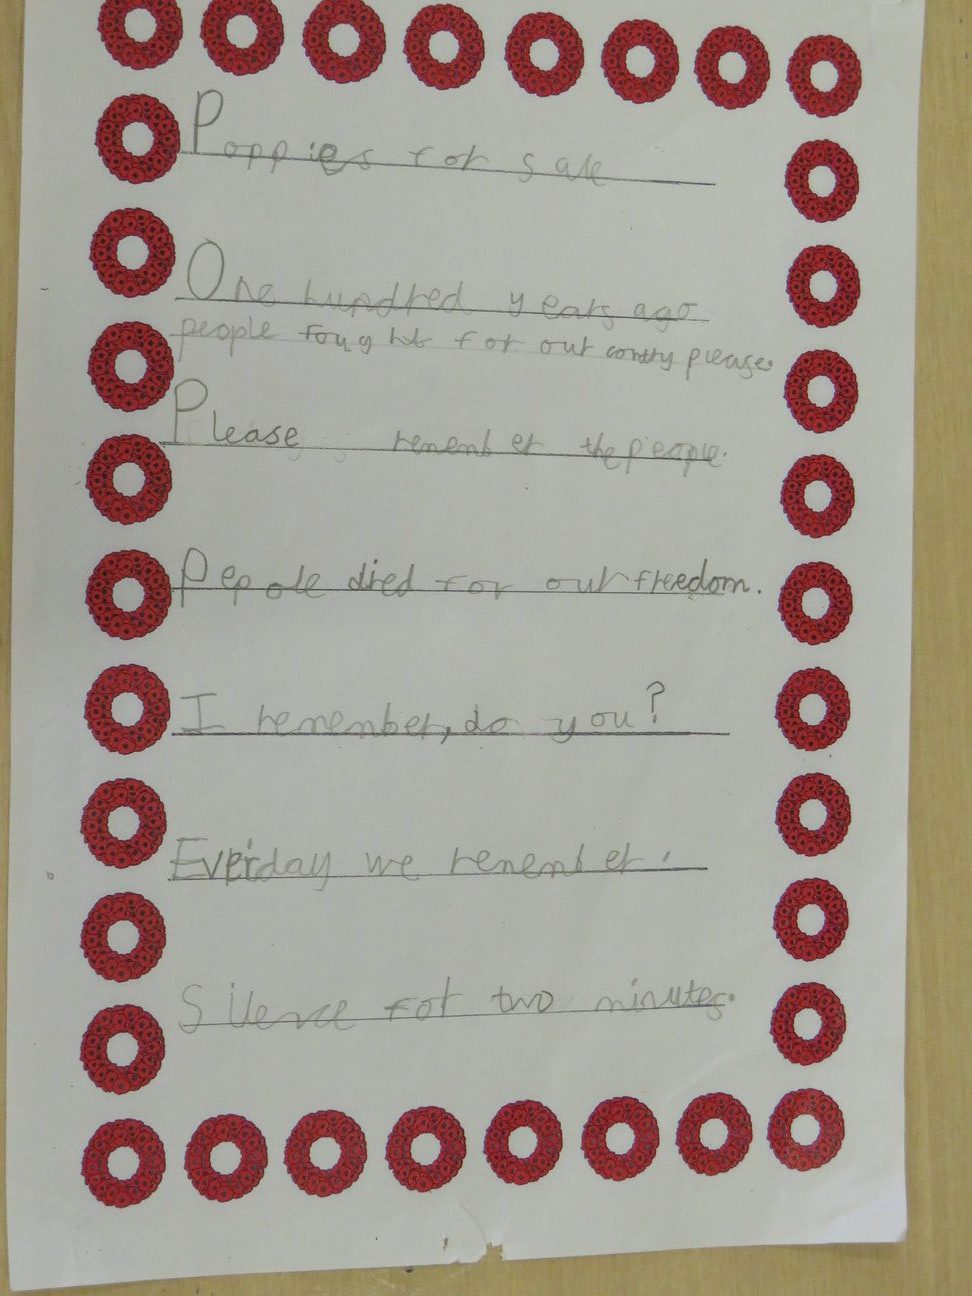 Poppies for sale
One hundred years ago
people fought for our contry please.
Please remember the people.
Pepole died for our freedom.
I remember, do you?
Everiday we remember.
Silence for two minutes.